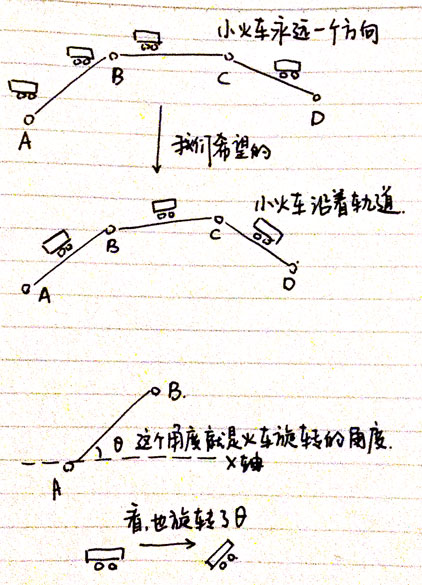 小火车永远一个方向
A
B
C
D
我们希望的
小火车沿着轨道.
A
B
C
D
B.
θ 这个角度就是火车旋转的角度.
A
X轴
看,也旋转了θ